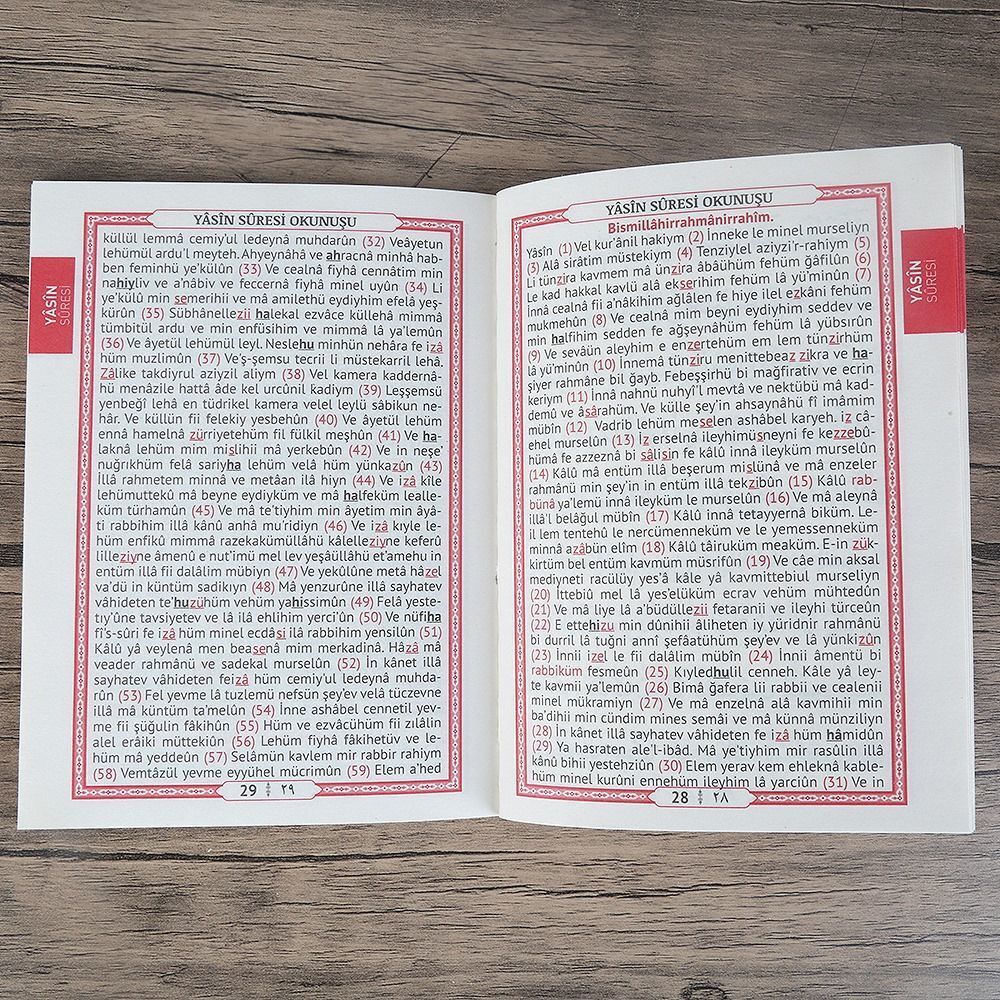 YÂSÎN SÛRESİ OKUNUŞU
Bismillâhirrahmânirrahîm.
Yâsîn (1) Vel kur'ânil hakiym (2) İnneke le minel murseliyn
(3) Alâ sirâtim müstekiym (4) Tenziylel aziyzi'r-rahiym (5)
Li tünzira kavmem mâ ünzira âbâühüm fehüm ğafilûn (6)
Le kad hakkal kavlü alâ ekserihim fehüm lâ yü'minûn (7)
İnnâ cealnâ fii a'nâkihim ağlâlen fe hiye ilel ezkâni fehüm
mukmehûn (8) Ve cealnâ mim beyni eydiyhim seddev ve
min halfihim sedden fe ağşeynâhüm fehüm lâ yübsırûn
(9) Ve sevâün aleyhim e enzertehüm em lem tünzirhüm
lâ yü'minûn (10) İnnemâ tünziru menittebeaz zikra ve ha-
şiyer rahmâne bil ğayb. Febeşşirhü bi mağfirativ ve ecrin
keriym (11) İnnâ nahnü nuhyi'l mevtâ ve nektübü mâ kad-
demû ve âsârahüm. Ve külle şey'in ahsaynâhü fî imâmim
mübîn (12) Vadrib lehüm meselen ashâbel karyeh. iz câ-
ehel murselûn (13) İz erselnâ ileyhimüsneyni fe kezzebû-
hümâ fe azzeznâ bi sâlisin fe kâlû innâ ileyküm murselûn
(14) Kâlû mâ entüm illâ beşerum mislünâ ve mâ enzeler
rahmânü min şey'in in entüm illâ tekzibûn (15) Kâlû rab-
bünâ ya'lemü innâ ileyküm le murselûn (16) Ve mâ aleynâ
illâ'l belâğul mübîn (17) Kâlû innâ tetayyernâ biküm. Le-i
lem tentehû le nercümenneküm ve le yemessenneküm
minnâ azâbün elîm (18) Kâlû tâiruküm meaküm. E-in zük-
kirtüm bel entüm kavmüm müsrifûn (19) Ve câe min aksal
mediyneti racülüy yes'â kâle yâ kavmittebiul murseliyn
(20) İttebiû mel lâ yes'elüküm ecrav vehüm mühtedûn
(21) Ve mâ liye lâ a'büdüllezii fetaranii ve ileyhi türceûn
(22) E ettehizu min dûnihii âliheten iy yüridnir rahmânü
bi durril lâ tuğni annî şefâatühüm şey'ev ve lâ yünkizûn
(23) İnnii izel le fii dalâlim mübîn (24) İnnii âmentü bi
rabbiküm fesmeûn (25) Kıyledhulil cenneh. Kâle yâ ley-
te kavmii ya'lemûn (26) Bimâ ğafera lii rabbii ve cealenii
minel mükramiyn (27) Ve mâ enzelnâ alâ kavmihii min
ba'dihii min cündim mines semâi ve mâ künnâ münziliyn
(28) İn kânet illâ sayhatev vâhideten fe izâ hüm hâmidûn
(29) Ya hasraten ale'l-ibâd. Mâ ye'tiyhim mir rasûlin illâ
kânû bihii yestehziûn (30) Elem yerav kem ehleknâ kable-
hüm minel kurûni ennehüm ileyhim lâ yarciûn (31) Ve in
28 ٢٨
YÂSÎN
SÛRESİ
YÂSÎN SÛRESİ OKUNUŞU
küllül lemmâ cemiy'ul ledeynâ muhdarûn (32) Veâyetun
lehümül ardu'l meyteh. Ahyeynâhâ ve ahracnâ minhâ hab-
ben feminhü ye'külûn (33) Ve cealnâ fiyhâ cennâtim min
nahiyliv ve a'nâbiv ve feccernâ fiyhâ minel uyûn (34) Li
ye'külû min semerihii ve mâ amilethü eydiyhim efelâ yeş-
kürûn (35) Sübhânellezii halekal ezvâce küllehâ mimmâ
tümbitül ardu ve min enfüsihim ve mimmâ lâ ya'lemûn
(36) Ve âyetül lehümül leyl. Neslehu minhün nehâra fe izâ
hüm muzlimûn (37) Ve'ş-şemsu tecrii li müstekarril lehâ.
Zâlike takdiyrul aziyzil aliym (38) Vel kamera kaddernâ-
hü menâzile hattâ âde kel urcûnil kadiym (39) Leşşemsü
yenbeğî lehâ en tüdrikel kamera velel leylü sâbikun ne-
hâr. Ve küllün fii felekiy yesbehûn (40) Ve âyetül lehüm
ennâ hamelnâ zürriyetehüm fil fülkil meşhûn (41) Ve ha-
laknâ lehüm mim mislihii mâ yerkebûn (42) Ve in neşe'
nuğrıkhüm felâ sariyha lehüm velâ hüm yünkazûn (43)
İllâ rahmetem minnâ ve metâan ilâ hiyn (44) Ve izâ kîle
lehümuttekû mâ beyne eydiyküm ve mâ halfeküm lealle-
küm türhamûn (45) Ve mâ te'tiyhim min âyetim min âyâ-
ti rabbihim illâ kânû anhâ mu'ridiyn (46) Ve izâ kıyle le-
hüm enfikû mimmâ razekakümüllâhü kâlelleziyne keferû
lilleziyne âmenû e nut'imü mel lev yeşâüllâhü et'amehu in
entüm illâ fii dalâlim mübiyn (47) Ve yekûlûne metâ hâzel
va'dü in küntüm sadikıyn (48) Mâ yenzurûne illâ sayhatev
vâhideten te'huzühüm vehüm yahissimûn (49) Felâ yeste-
tıy'ûne tavsiyetev ve lâ ilâ ehlihim yerci'ûn (50) Ve nüfiha
fî's-sûri fe izâ hüm minel ecdâsi ilâ rabbihim yensilûn (51)
Kâlû yâ veylenâ men beasenâ mim merkadinâ. Hâzâ mâ
veader rahmânü ve sadekal murselûn (52) İn kânet illâ
sayhatev vâhideten feizâ hüm cemiy'ul ledeynâ muhda-
rûn (53) Fel yevme lâ tuzlemü nefsün şey'ev velâ tüczevne
illâ mâ küntüm ta'melûn (54) İnne ashâbel cennetil yev-
me fii şüğulin fâkihûn (55) Hüm ve ezvâcühüm fii zılâlin
alel erâiki müttekiûn (56) Lehüm fiyhâ fâkihetüv ve le-
hüm mâ yeddeûn (57) Selâmün kavlem mir rabbir rahiym
(58) Vemtâzül yevme eyyühel mücrimûn (59) Elem a'hed
29 ٢٩
YÂSÎN
SÛRESİ